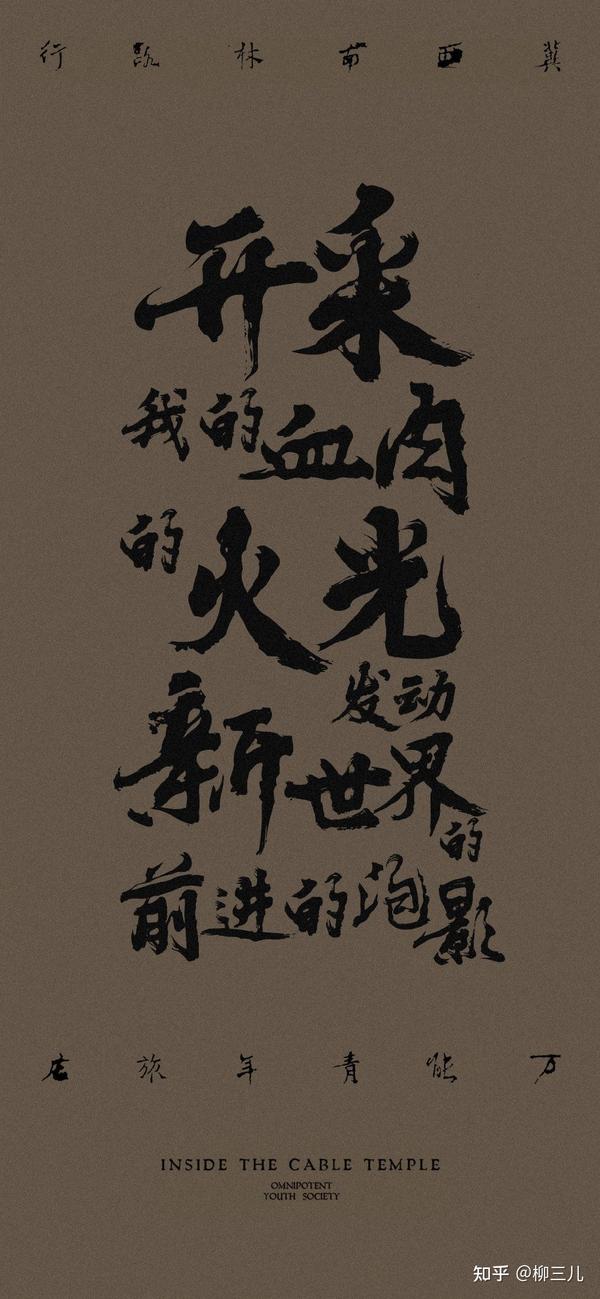 冀西南林路行
开采
我的血肉
的火光
发动
新世界
的
前进的泡影
万能青年旅店
INSIDE THE CABLE TEMPLE
OMNIPOTENT
YOUTH SOCIETY
知乎 @柳三儿